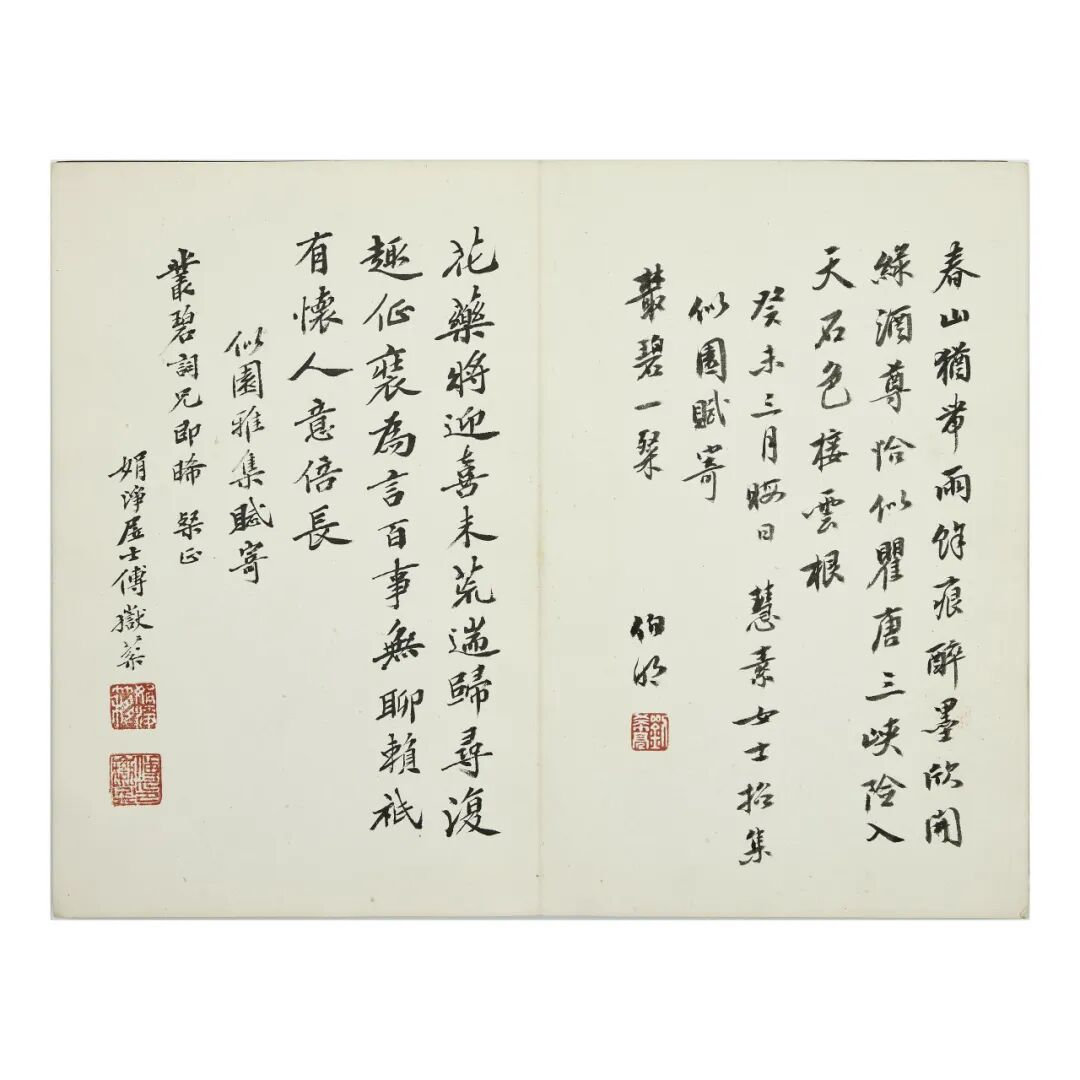 春山猶帶雨餘痕醉墨欣開
綠酒尊恰似瞿唐三峽險入
天石色接雲根
癸未三月晦日 慧素女士招集
似園賦寄
叢碧一粲
伯明
花藥將迎喜未荒遄歸尋復
趣仳裴為言百事無聊賴祇
有懷人意倍長
似園雅集賦寄
叢碧詞兄即晞 粲正
娟淨居士傅嶽棻